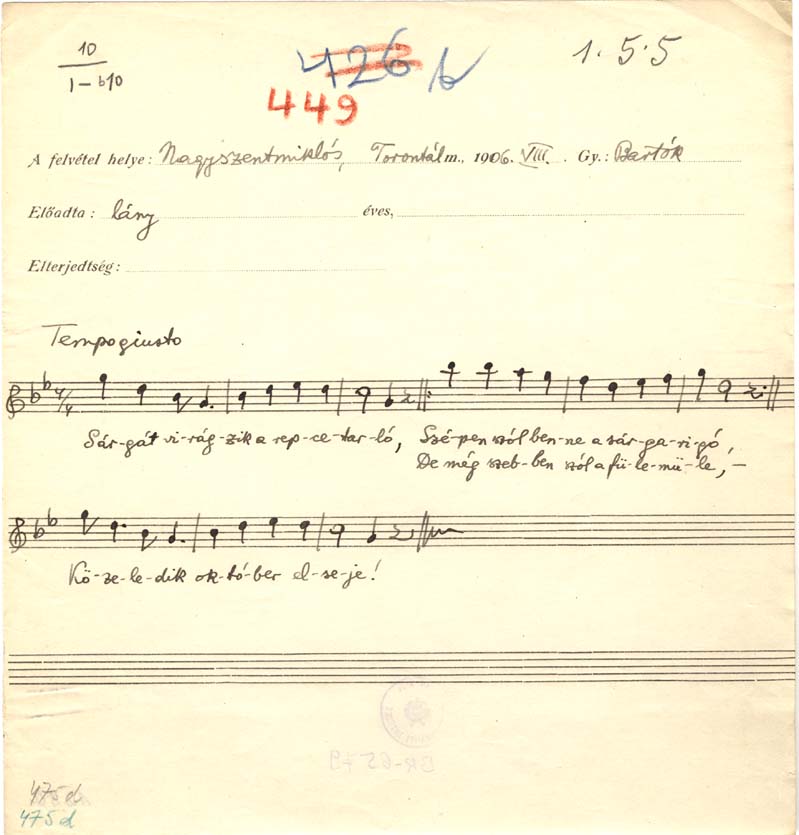 10
I – b10
426 b
1. 5. 5
449
A felvétel helye: Nagyszentmiklós, Torontál m., 1906. VIII. Gy.: Bartók
Előadta: lány éves,
Elterjedtség:
Tempo giusto
4/4
Sár-gát vi-rág-zik a rep-ce-tar-ló, Szé-pen szól ben-ne a sár-ga-ri-gó,
De még szeb-ben szól a fü-le-mü-le, –
Kö-ze-le-dik ok-tó-ber el-se-je!
BR-6579
475d
475d